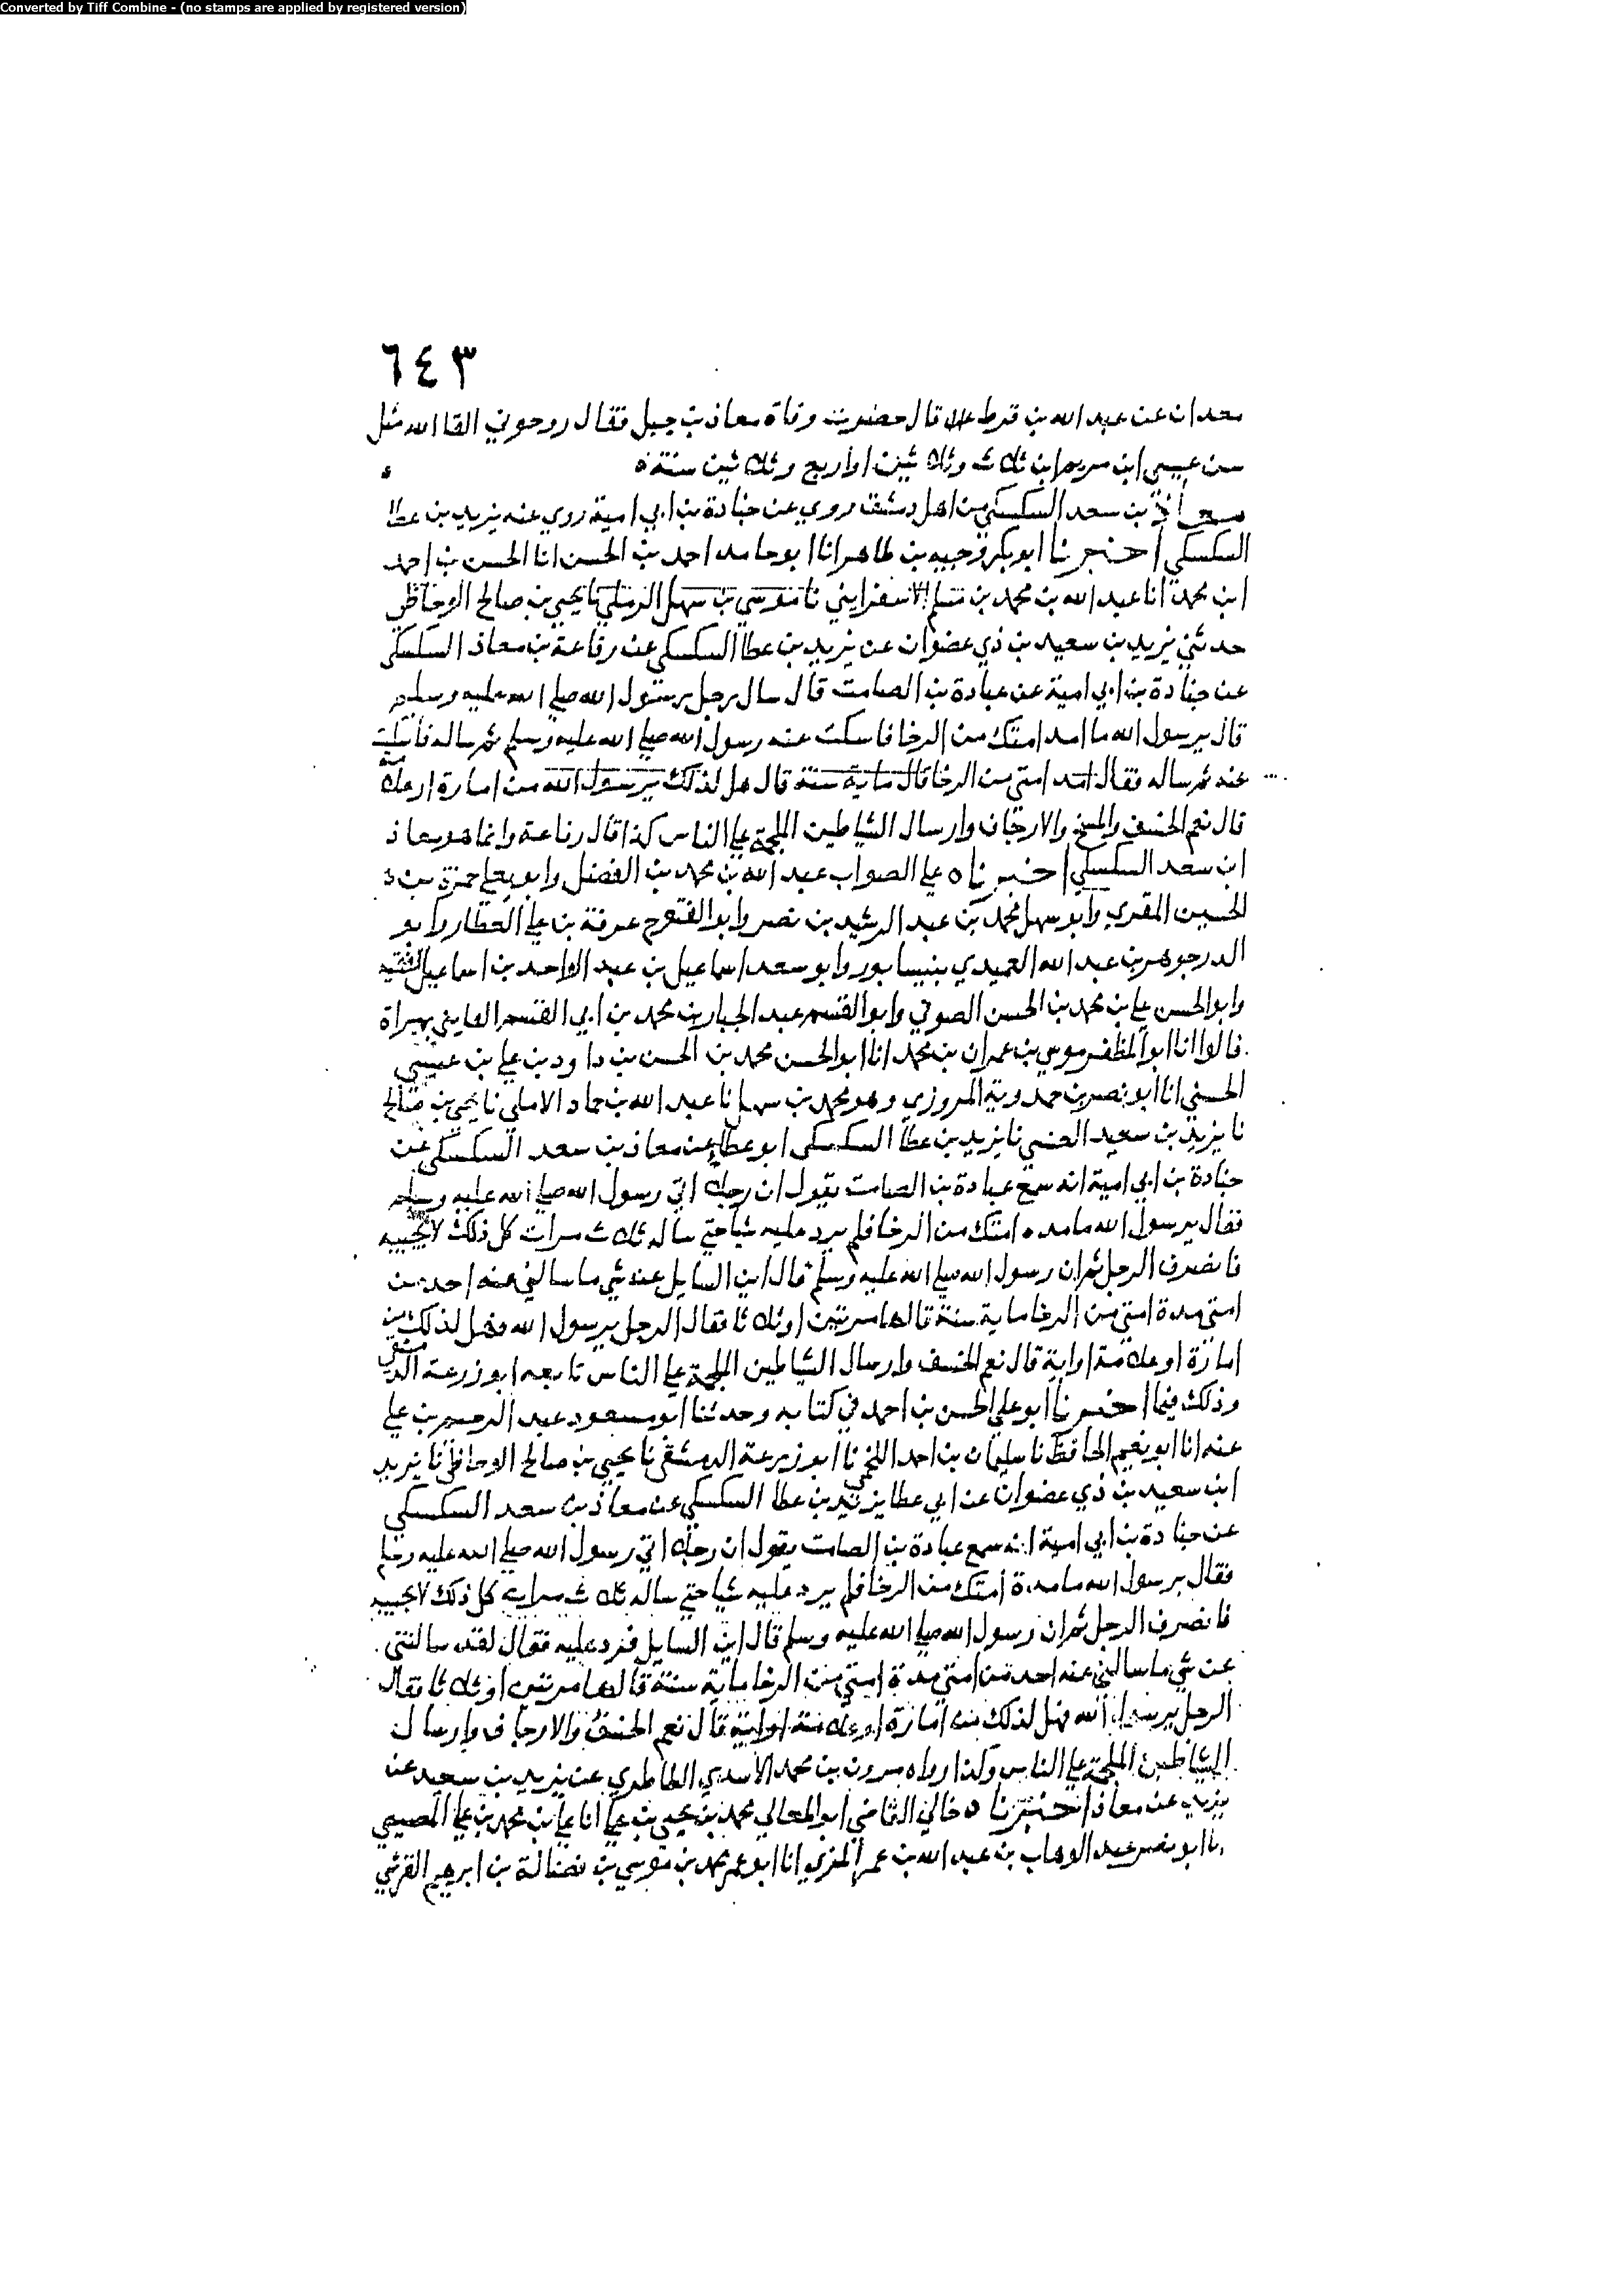 Converted by Tiff Combine - (no stamps are applied by registered version)
٦٤٣
معدان عن عبد الله بن قرط قال حضرت وفاة معاذ بن جبل فقال روحوني القا الله مثل
سن عيسي ابن مريم ابن ثلاث وثلاثين او اربع وثلاثين سنة
معاذ بن سعد السكسكي من اهل دمشق روي عن جنادة بن ابي امية روي عنه يزيد بن عطا
السكسكي اخبرنا ابو بكر وجيه بن طاهر انا ابو حامد احمد بن الحسن انا الحسن بن احمد
ابن محمد انا عبد الله بن محمد بن مسلم الاسفرايني نا موسي بن سهل الرملي نا يحيي بن صالح الوحاظي
حدثني يزيد بن سعيد بن ذي عضوان عن يزيد بن عطا السكسكي عن رفاعة بن معاذ السكسكي
عن جنادة بن ابي امية عن عبادة بن الصامت قال سال رجل برسول الله صلي الله عليه وسلم
قال يرسول الله ما امد امتك من الرخا فاسكت عنه رسول الله صلي الله عليه وسلم ثم ساله فاسكت
عنه ثم ساله فقال امد امتي من الرخا قال ماية سنة قال هل لذلك يرسول الله من امارة او علامة
قال نعم الخسف والمسخ والارجاف وارسال الشياطين الملجمة علي الناس كذا قال رفاعة وانما هو معاذ
ابن سعد السكسكي اخبرناه علي الصواب عبد الله بن محمد بن الفضل وابو يعلي حمزة بن
الحسين المقري وابو سهل محمد بن عبد الرشيد بن نصر وابو الفتوح عرفة بن علي العطار وابو
الدر جوهر بن عبد الله العميدي بنيسابور وابو سعد اسماعيل بن عبد الواحد بن اسماعيل الفقيه
وابو الحسن علي بن محمد بن الحسن الصوفي وابو القسم عبد الجبار بن محمد بن ابي القسم القايني بهراة
قالوا انا ابو المظفر موسي بن عمران بن محمد انا ابو الحسن محمد بن الحسن بن داود بن علي بن عيسي
الحسني انا ابو نصر بن حمدوية المروزي وهو محمد بن سهل نا عبد الله بن حماد الاملي نا يحيي بن صالح
نا يزيد بن سعيد العنسي نا يزيد بن عطا السكسكي ابو عطا عن معاذ بن سعد السكسكي عن
جنادة بن ابي امية انه سمع عبادة بن الصامت يقول ان رجلا اتي رسول الله صلي الله عليه وسلم
فقال يرسول الله ما مده امتك من الرخا فلم يرد عليه شيا حتي ساله ثلاث مرات كل ذلك لا يجيبه
فانصرف الرجل ثم ان رسول الله صلي الله عليه وسلم قال اين السايل عنه شي ما سالني عنه احد من
امتي مدة امتي من الرخا ماية سنة قالها مرتين او ثلاثا فقال الرجل يرسول الله فهل لذلك من
امارة او علامة او اية قال نعم الخسف وارسال الشياطين الملجمة علي الناس تابعه ابو زرعة الدمشقي
وذلك فيما اخبرنا ابو علي الحسن بن احمد في كتابه وحدثنا ابو مسعود عبد الرحيم بن علي
عنه انا ابو نعيم الحافظ نا سليمان بن احمد اللخمي نا ابو زرعة الدمشقي نا يحيي بن صالح الوحاظي نا يزيد
ابن سعيد بن ذي عضوان عن ابي عطا يزيد بن عطا السكسكي عن معاذ بن سعد السكسكي
عن جنادة بن ابي امية انه سمع عبادة بن الصامت يقول ان رجلا اتي رسول الله صلي الله عليه وسلم
فقال يرسول الله ما مدة امتك من الرخا فلم يرد عليه شيا حتي ساله ثلاث مرات كل ذلك لا يجيبه
فانصرف الرجل ثم ان رسول الله صلي الله عليه وسلم قال اين السايل فرد عليه فقال لقد سالتني
عن شي ما سالني عنه احد من امتي مدة امتي من الرخا ماية سنة قالها مرتين او ثلاثا فقال
الرجل يرسول الله فهل لذلك من امارة او علامة او اية قال نعم الخسف والارجاف وارسال
الشياطين الملجمة علي الناس وكذا رواه مرون بن محمد الاسدي الطاطري عن يزيد بن سعيد عن
يزيد عن معاذ اخبرناه خالي القاضي ابو المعالي محمد بن يحيي بن علي انا علي بن محمد بن علي المصيصي
نا ابو نصر عبد الوهاب بن عبد الله بن عمر المزي انا ابو عمر محمد بن موسي بن فضالة بن ابرهيم القرشي